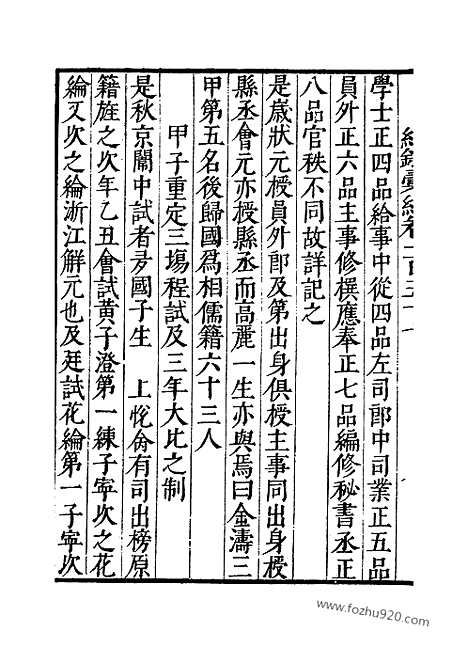 紀錄彙編卷一百五十
學士正四品給事中從四品左司郎中司業正五品
員外正六品主事修撰應奉正七品編修秘書丞正
八品官秩不同故詳記之
是歲狀元授員外郎及第出身俱授主事同出身授
縣丞會元亦授縣丞而高麗一生亦與焉曰金濤三
甲第五名後歸國為相儒籍六十三人
甲子重定三場程試及三年大比之制
是秋京闈中試者多國子生 上悅命有司出榜原
籍旌之次年乙丑會試黃子澄第一練子寧次之花
綸又次之綸浙江解元也及廷試花綸第一子寧次
www.fozhu920.com